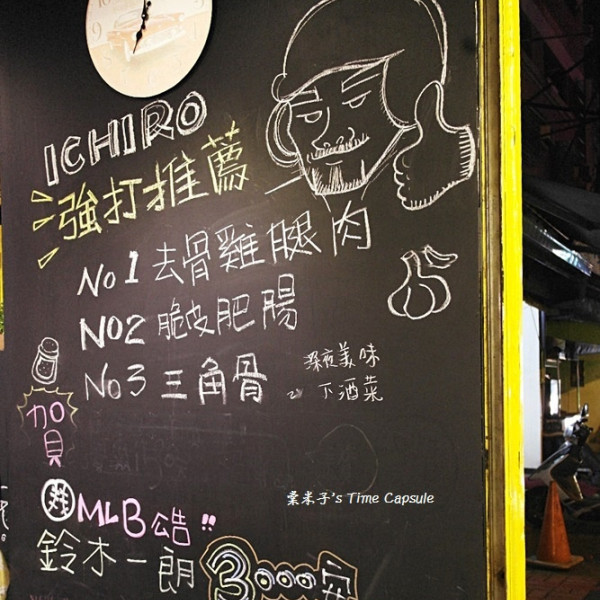 ICHIRO
強打推薦
No 1 去骨雞腿肉
NO2 脆皮肥腸
No 3 三角骨
深夜美味
下酒菜
賀
MLB 公告!!
鈴木一朗 3000安
粟米子's Time Capsule